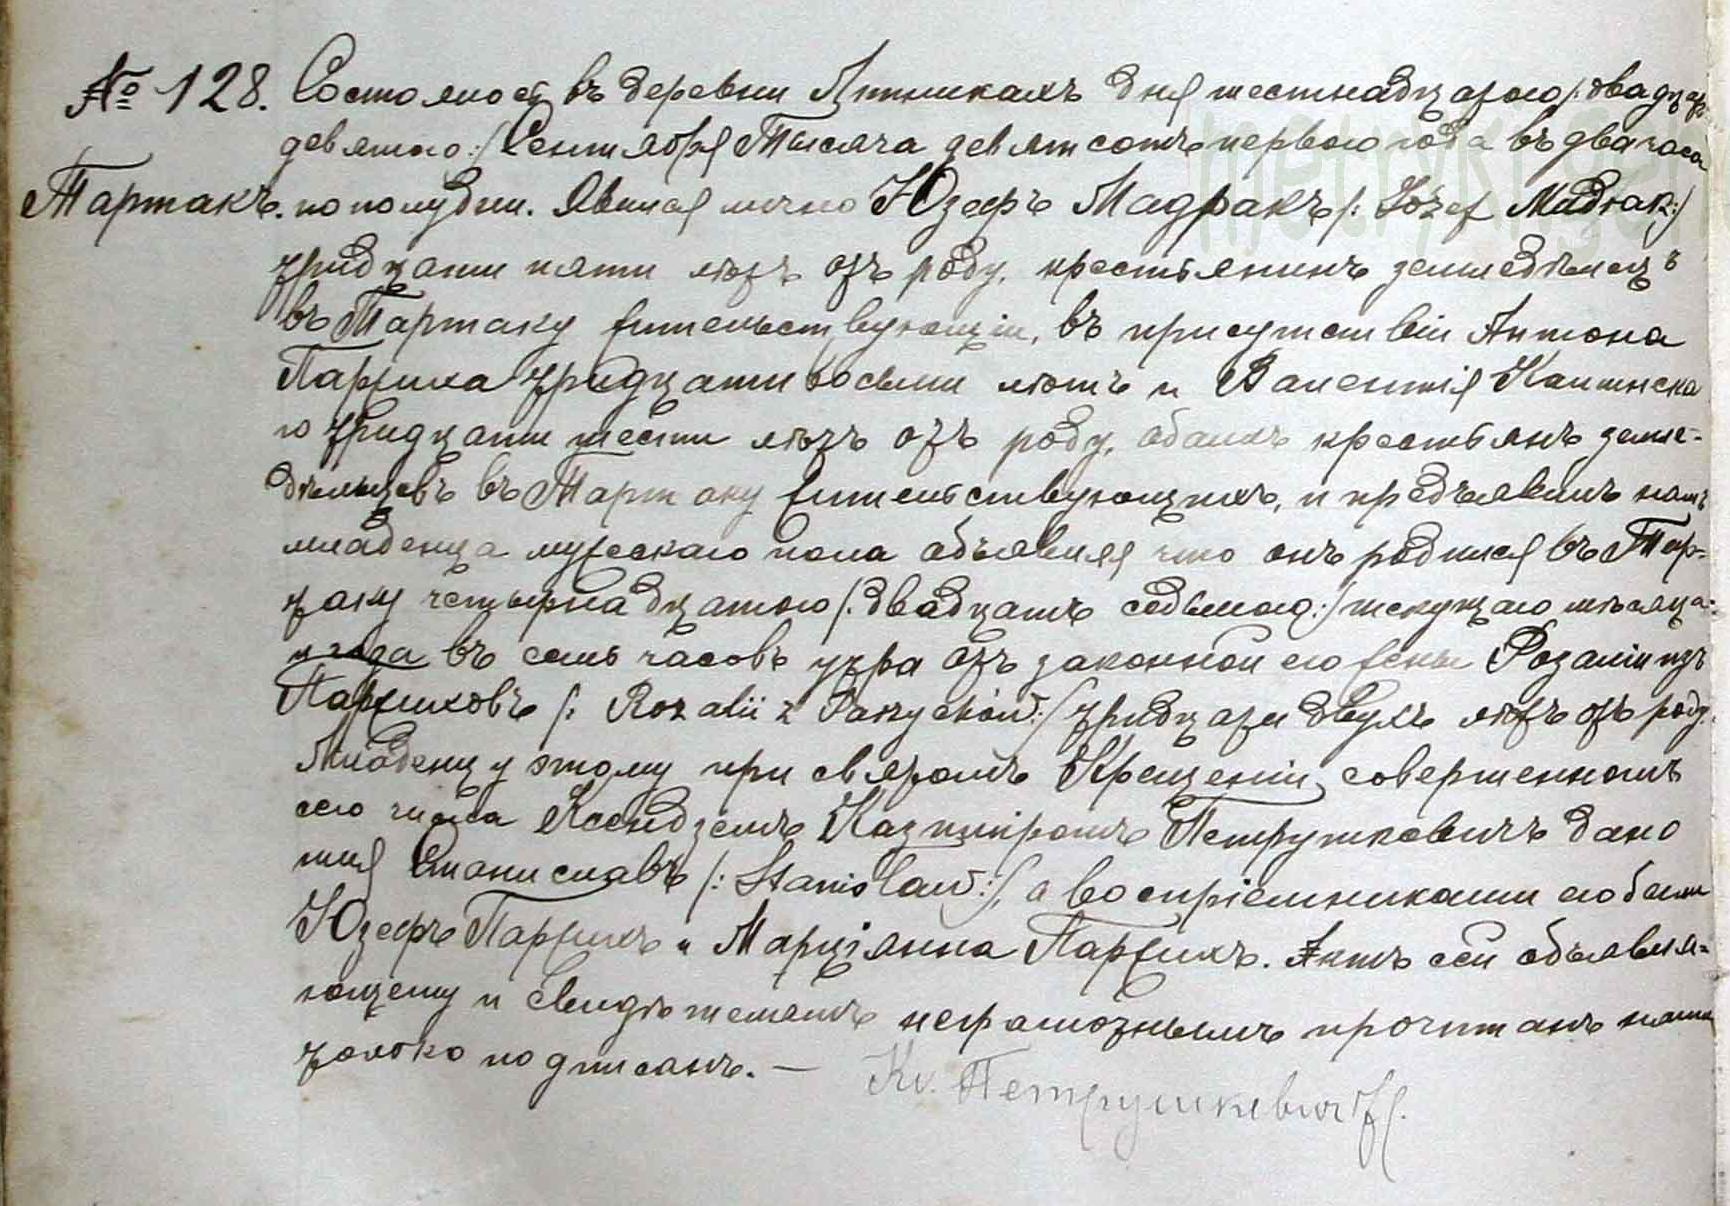 № 128. Состоялось въ деревни Липникахъ дня шестнадцатого /: двадцать
девятого :/ Сентября Тысяча девятсотъ первого года въ два часа
Тартакъ. по полудни. Явился лично Юзефъ Мадракъ /: Józef Madrak :/
тридцати пяти лѣтъ отъ роду, крестьянинъ земледѣлецъ
въ Тартаку жительствующій, въ присутствіи Антона
тридцати восьми лѣтъ и Валентія
го тридцати шести лѣтъ отъ роду, обаихъ крестьянъ земле-
дѣльцевъ въ Тартаку жительствующихъ, и предъявилъ намъ
младенца мужескаго пола объявляя что онъ родился въ Тар-
таку четырнадцатого /: двадцать седьмого :/ текущаго мѣсяца
и года въ семь часовъ утра отъ законной его жены Розаліи изъ
/: Rozalii z :/ тридцати двухъ лѣтъ отъ роду.
Младенцу этому при святомъ Крещеніи, совершенномъ
сего числа Ксендземъ Казимиромъ Петрушкевичъ дано
имя Станиславъ /: Stanisław :/, а воспріемниками его были
Юзефъ и Марціянна. Актъ сей объявля-
ющему и свидѣтелямъ неграмотнымъ прочитанъ нами
только подписанъ. —
Кс. Петрушкевичъ